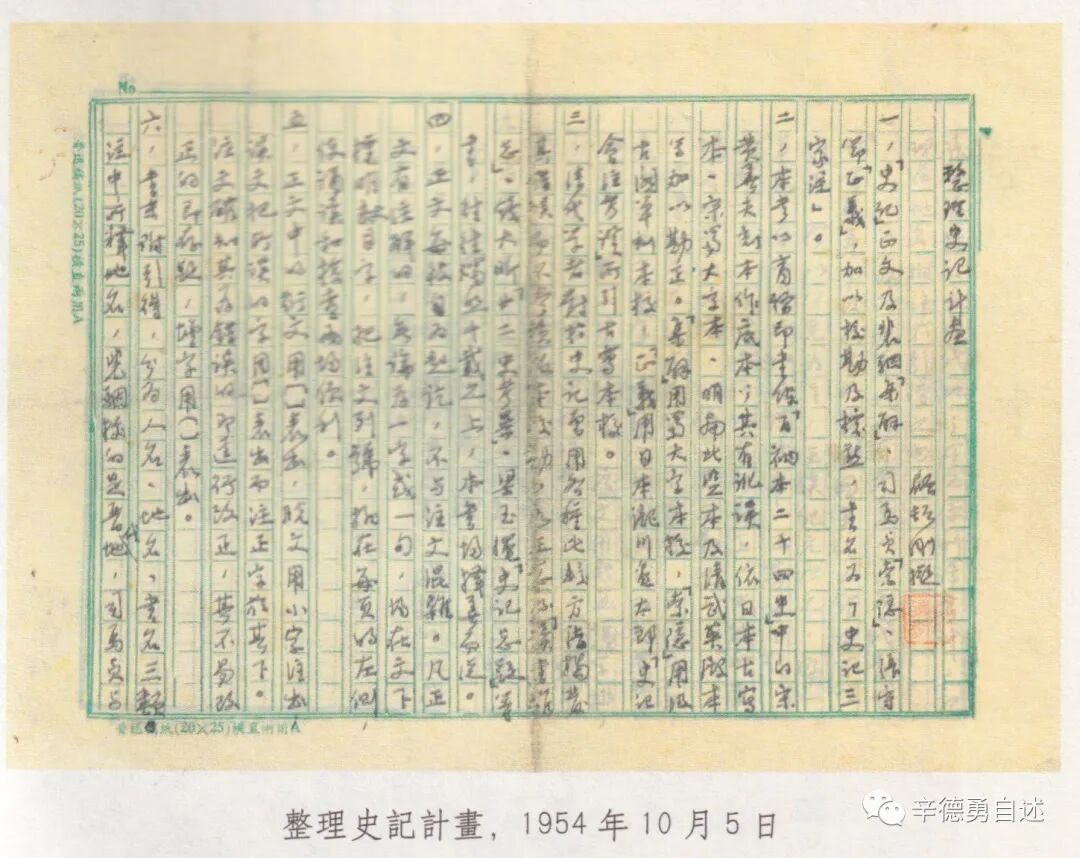 No
整理史記計畫
顧頡剛擬
一，「史記」正文及裴駰「集解」、司馬貞「索隱」、張守
節「正義」，加以校勘及標點，書名為「史記三
家注」。
二，本書以商務印書館「百衲本二十四史」中的宋
黃善夫刻本作底本；以其有訛誤，依日本古寫
本、宋蜀大字本、明南北監本及清武英殿本
等加以勘正。「集解」用蜀大字本校，「索隱」用汲
古閣單刻本校，「正義」用日本瀧川龜太郎「史記
會注考證」所引古寫本校。
三，清代學者對於史記曾用各種比較方法揭發
其錯誤
志」、錢大昕「廿二史考異」、梁玉繩「史記志疑」等
書，往往獨出千載之上，本書均擇善而從。
四，正文每段自為起訖，不與注文混雜。凡正
文有注解的，無論在一字或一句，均在文下
標明數目字，把注文列號，排在每頁的左側，
使誦讀和檢查兩均便利。
五，正文中的衍文用〔〕表出，脫文用小字注出，
誤文把所誤的字用〔〕表出而注正字於其下。
注文確知其為錯誤的即逕行改正，其不易改
正的即存疑，增字用〔〕表出。
六，書末附引得，分為人名、地名、書名三類。
注中所釋地名，裴駰據的是晉代地，司馬貞與
(20×25)橫直兩用A
(20×25)橫直兩用A
整理史記計畫，1954年10月5日
辛德勇自述